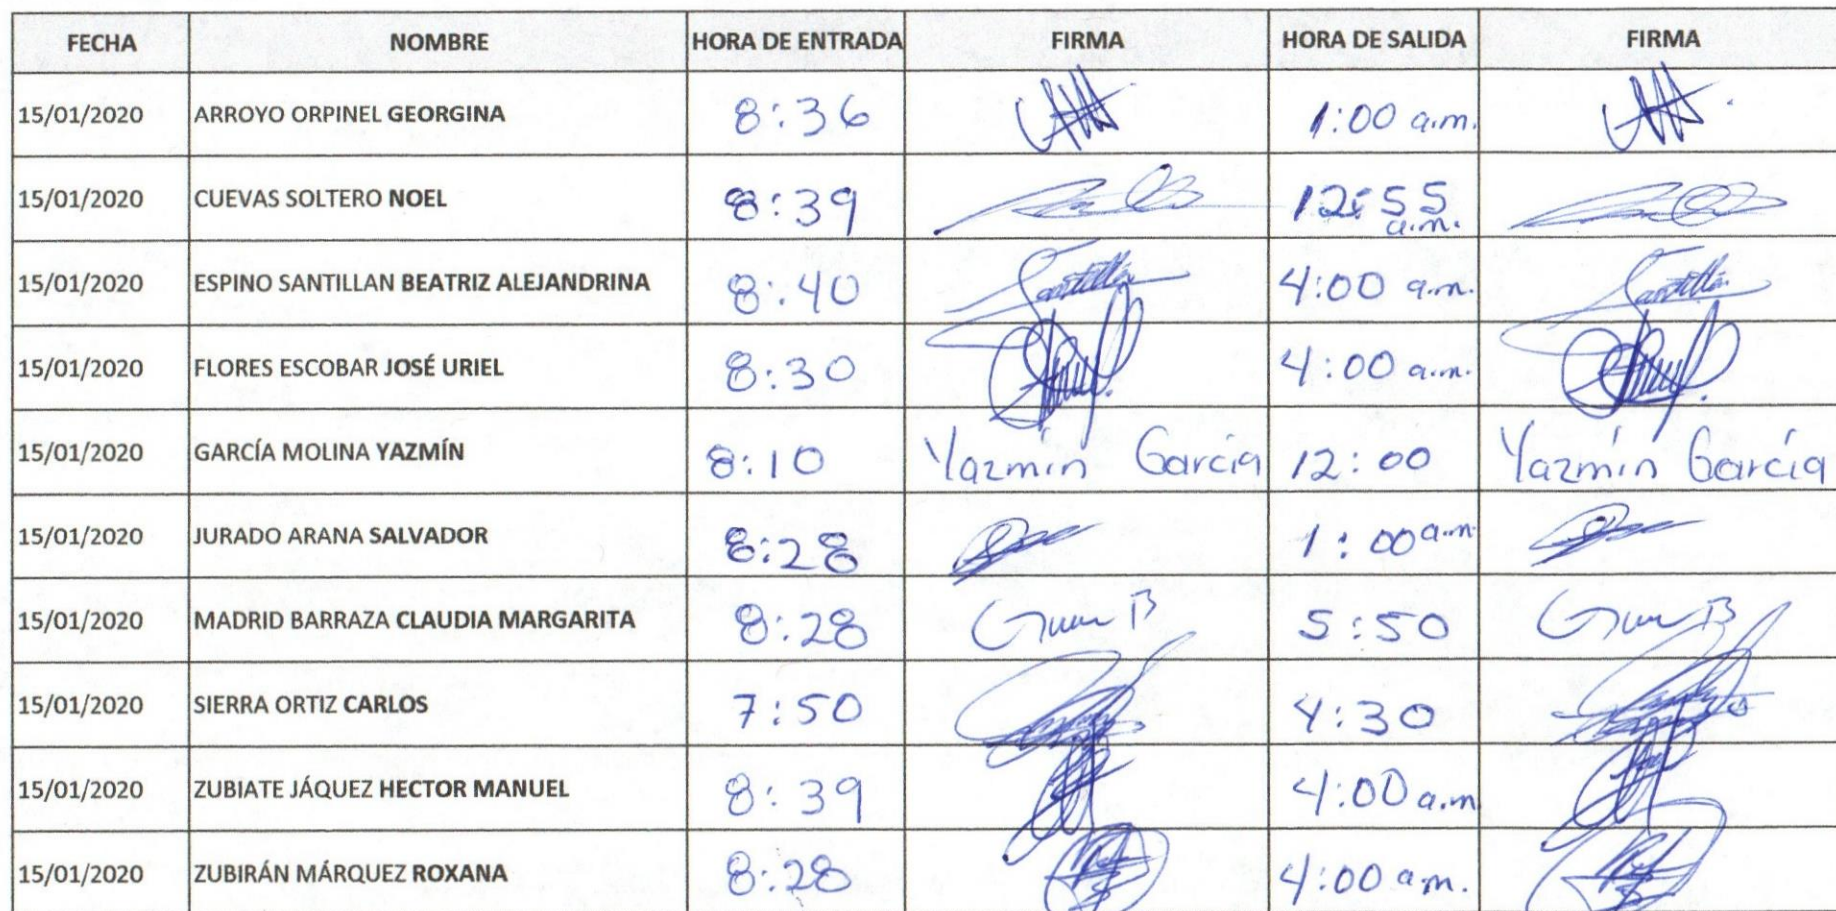 FECHA NOMBRE HORA DE ENTRADA FIRMA HORA DE SALIDA FIRMA
15/01/2020 ARROYO ORPINEL GEORGINA 8:36 1:00 a.m.
15/01/2020 CUEVAS SOLTERO NOEL 8:39 12:55 a.m.
15/01/2020 ESPINO SANTILLAN BEATRIZ ALEJANDRINA 8:40 Santillán 4:00 a.m. Santillán
15/01/2020 FLORES ESCOBAR JOSÉ URIEL 8:30 4:00 a.m.
15/01/2020 GARCÍA MOLINA YAZMÍN 8:10 Yazmín García 12:00 Yazmín García
15/01/2020 JURADO ARANA SALVADOR 8:28 1:00 a.m
15/01/2020 MADRID BARRAZA CLAUDIA MARGARITA 8:28 5:50
15/01/2020 SIERRA ORTIZ CARLOS 7:50 4:30
15/01/2020 ZUBIATE JÁQUEZ HECTOR MANUEL 8:39 4:00 a.m
15/01/2020 ZUBIRÁN MÁRQUEZ ROXANA 8:28 4:00 a.m.